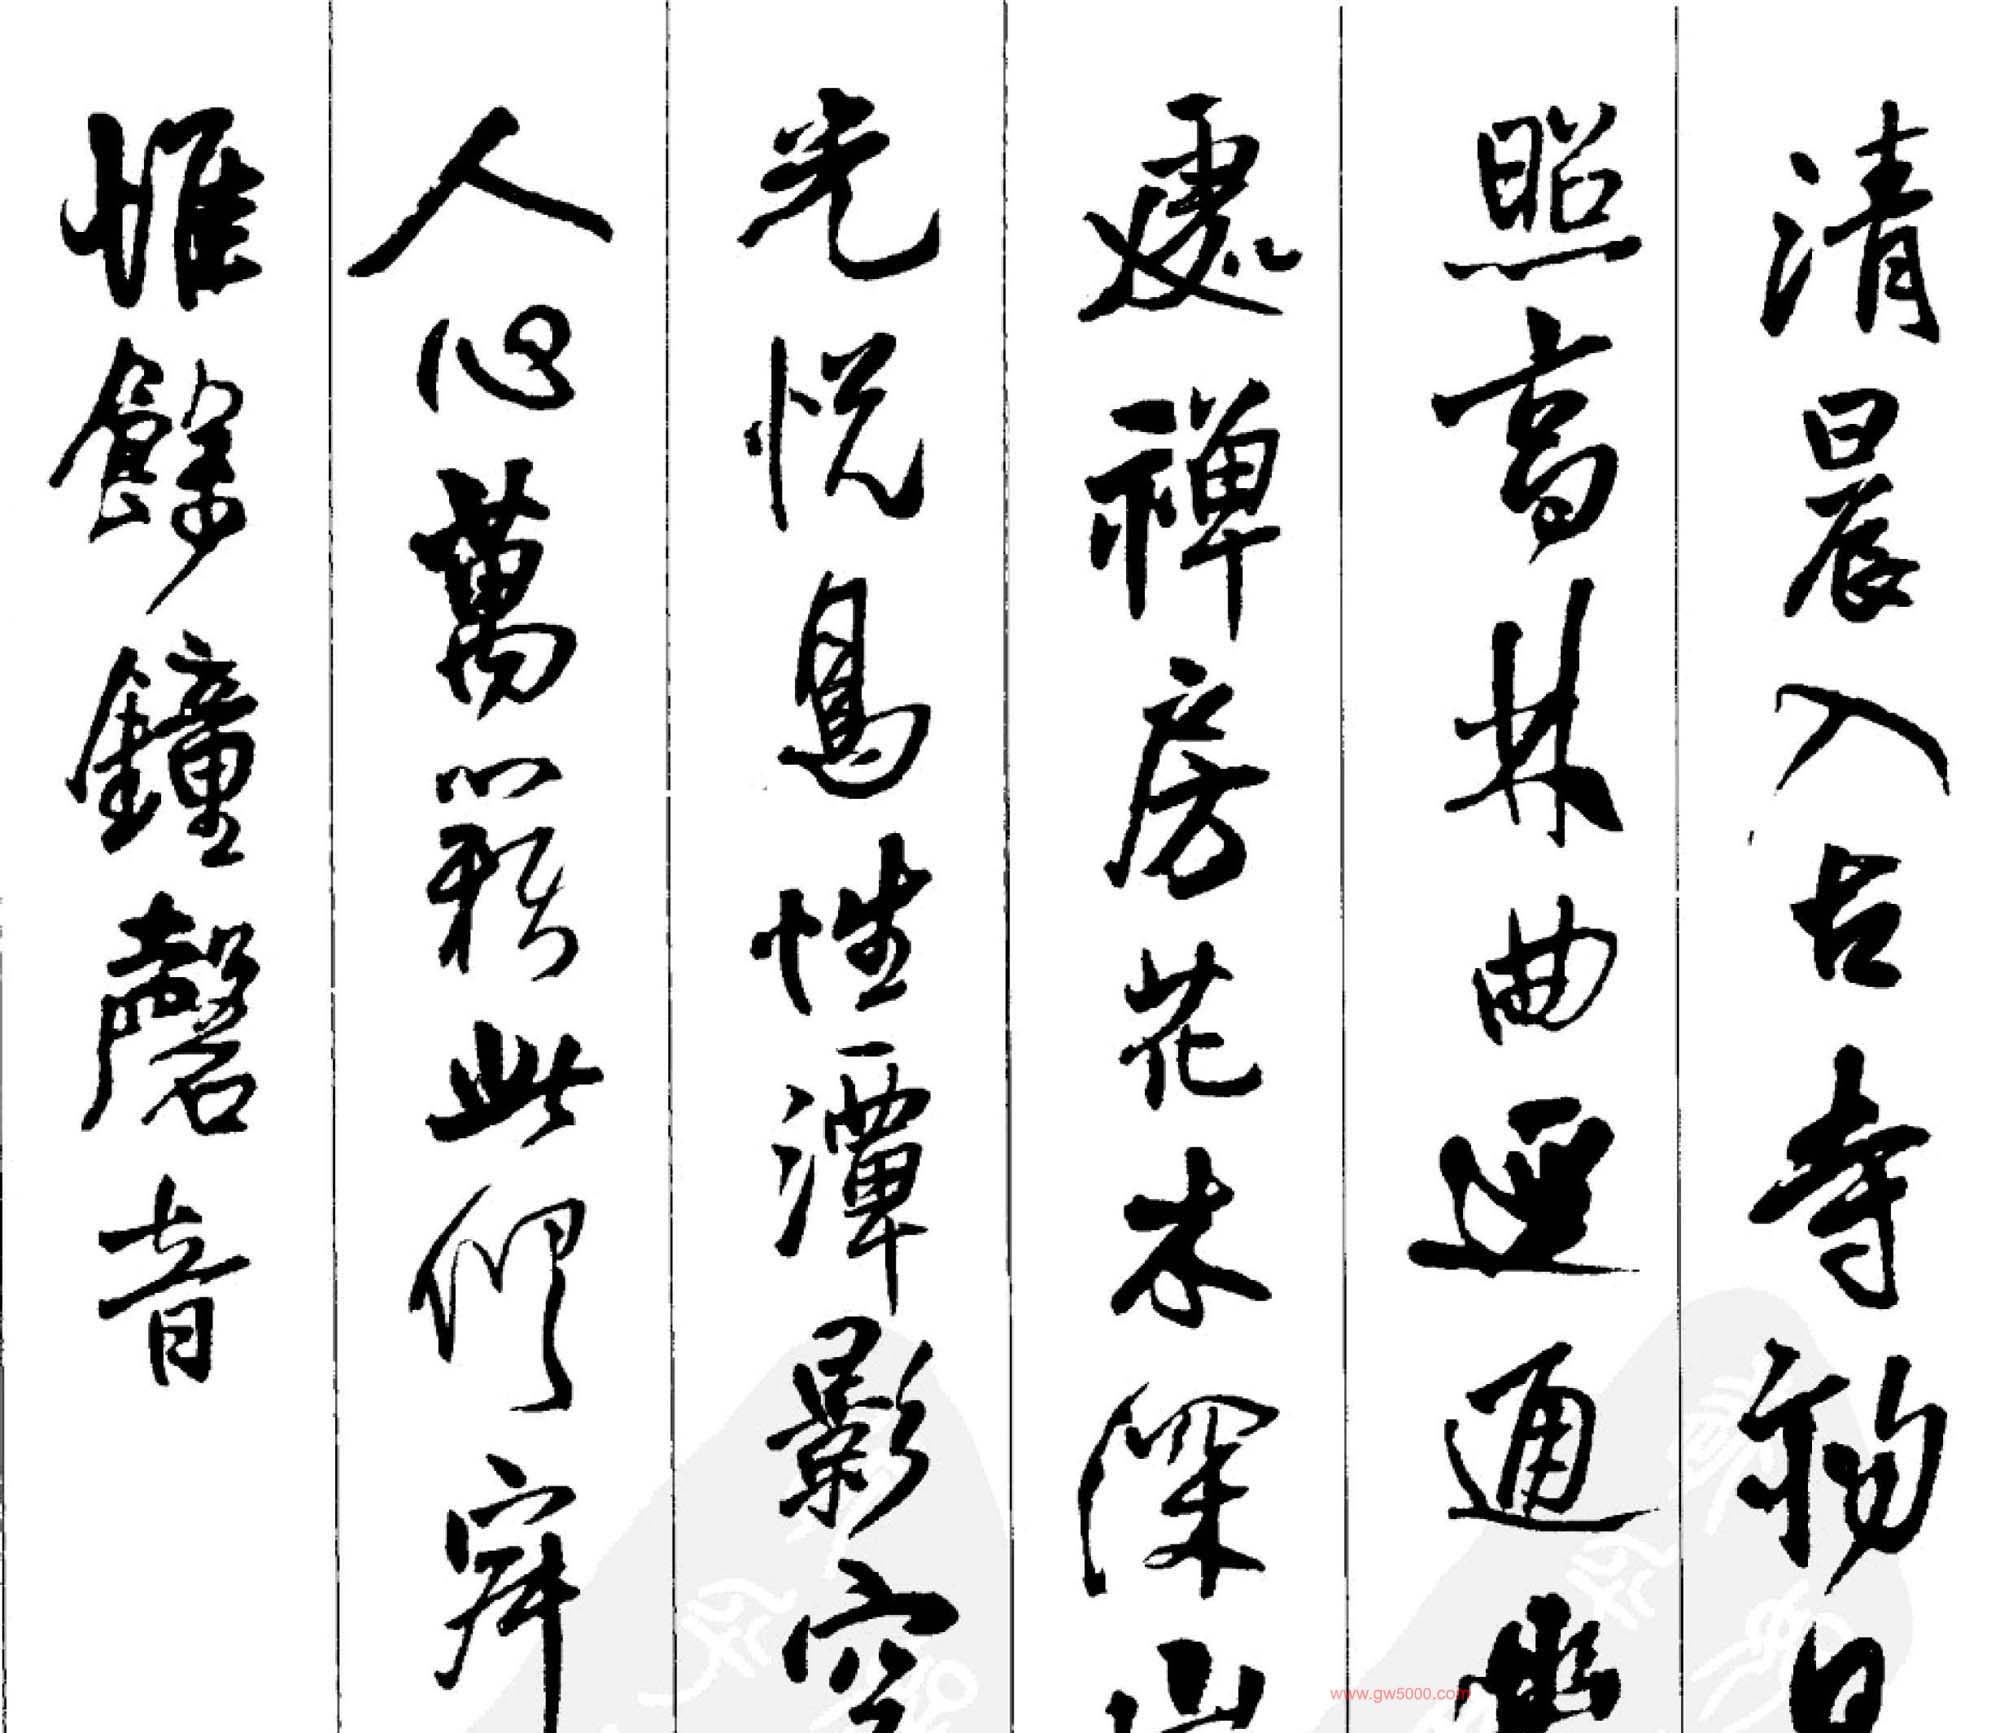 清晨入古寺初日
照高林曲逕通幽
處禪房花木深山
光悅鳥性潭影空
人心萬籟此俱寂
惟餘鐘磬音
www.gw5000.com